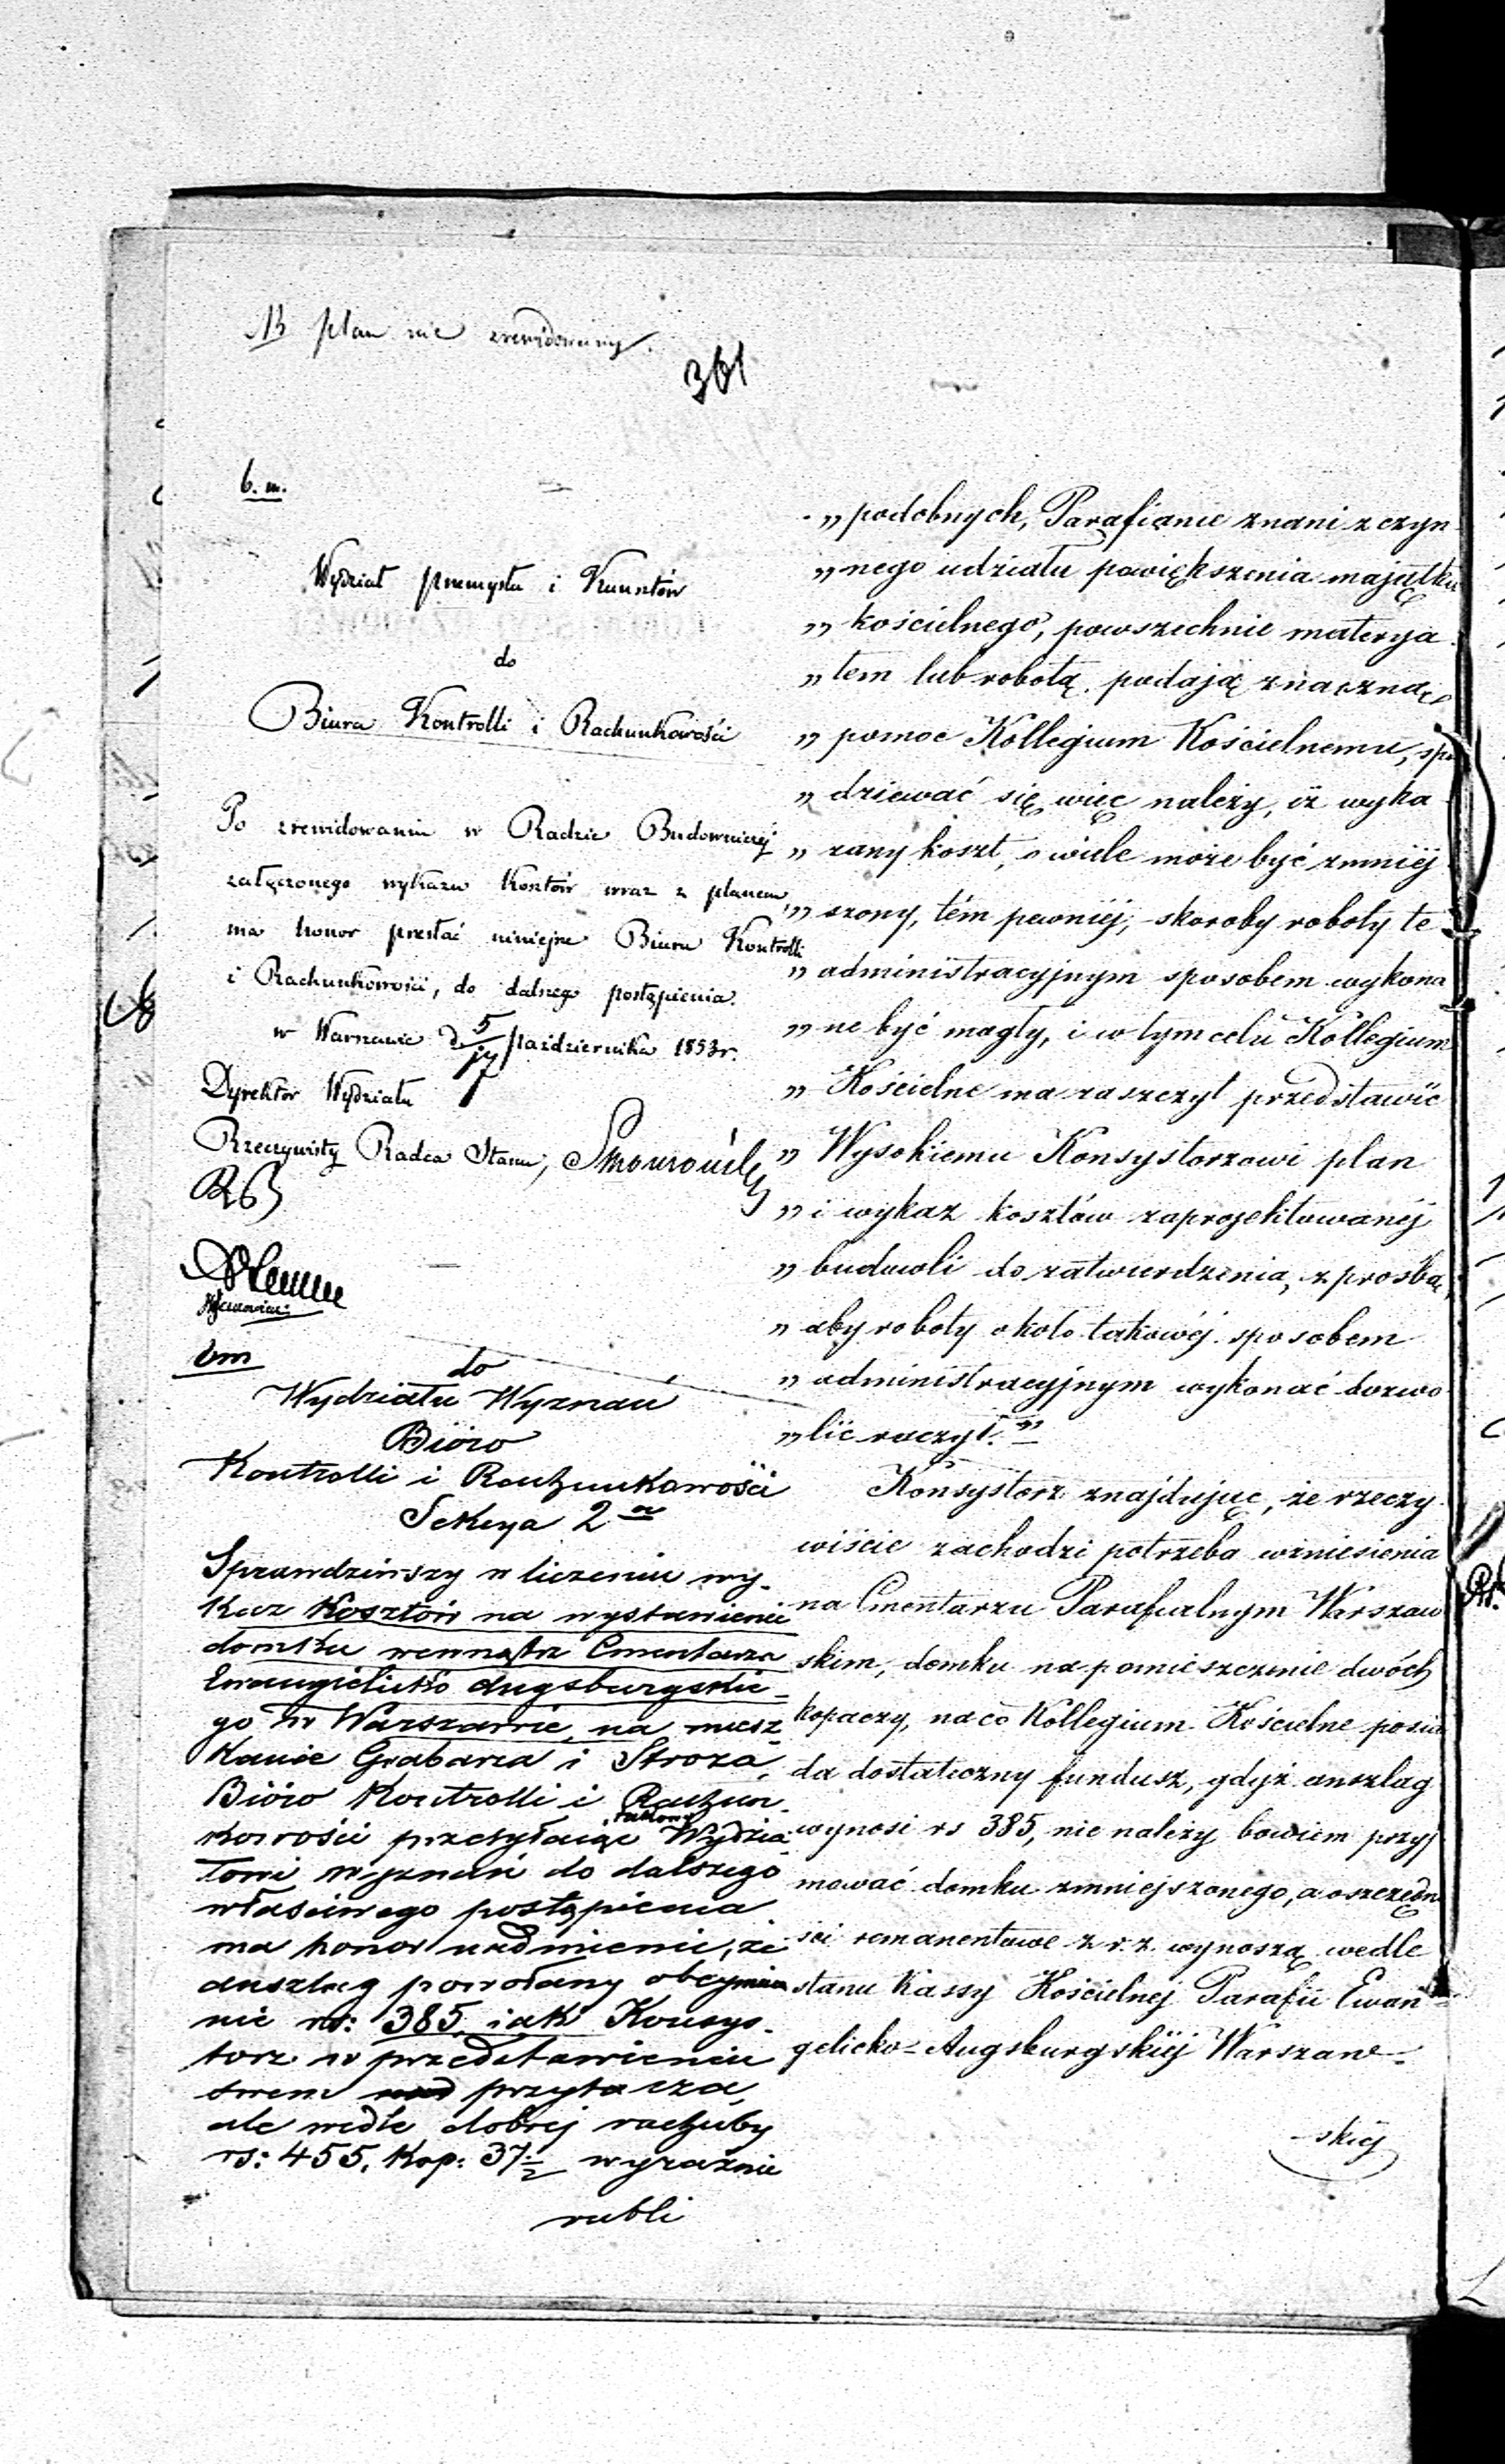 NB plan nie zrewidowany.
361
b. m.
Wydział Przemysłu i Kunsztów
do
Biura Kontrolli i Rachunkowości
Po zrewidowaniu w Radzie Budowniczej
załączonego wykazu Kosztów wraz z planem,
ma honor przesłać niniejsze Biuru Kontrolli
i Rachunkowości, do dalszego postąpienia.
w Warszawie d. 5/17 Października 1853 r.
Dyrektor Wydziału
Rzeczywisty Radca Stanu,
do
Wydziału Wyznań
Bióro
Kontrolli i Rachunkowości
Sekcya 2a
Sprawdziwszy w liczeniu wy-
kaz Kosztów na wystawienie
domku wewnątrz Cmentarza
Ewangielicko Augsburgskie-
go w Warszawie, na miesz-
kanie Grabarza i Stroza,
Bióro Kontrolli i Rachun-
kowości przesyłaiąc takowy Wydzia-
łowi Wyznań do dalszego
właściwego postąpienia
ma honor nadmienić, że
anszlag powołany obeymuie
nie rs: 385, iak Konsys-
torz w przedstawieniu
swem przytacza,
ale wedle dobrej rachuby
rs: 455, Kop: 37 1/2 wyraźnie
rubli
„ podobnych, Parafianie znani z czyn-
„ nego udziału powiększenia majątku
„ kościelnego, powszechnie materya-
„ łem lub robotą, podają znaczną
„ pomoc Kollegium Kościelnemu, spo
„ dziewać się więc należy, iż wyka-
„ zany koszt, o wiele może być zmniéj-
„ szony, tém pewniéj, skoroby roboty te
„ administracyjnym sposobem wykona
„ ne być mogły, i w tym celu Kollegium
„ Kościelne ma zaszczyt przedstawić
„ Wysokiemu Konsystorzowi plan
„ i wykaz kosztów zaprojektowanéj
„ budowli do zatwierdzenia, z prośbą,
„ aby roboty około takowéj sposobem
„ administracyjnym wykonać dozwo
„ lić raczył.”
Konsystorz znajdując, że rzeczy-
wiście zachodzi potrzeba wzniesienia
na Cmentarzu Parafialnym Warszaw
skim, domku na pomieszczenie dwóch
kopaczy, na co Kollegium Kościelne posia
da dostateczny fundusz, gdyż anszlag
wynosi rs 385, nie należy bowiem przyj
mować domku zmniejszonego, a oszczędno
ści remanentowe z r. z. wynoszą wedle
stanu Kassy Kościelnej Parafii Ewan-
gelicko-Augsburgskiéj Warszaw-
skiéj